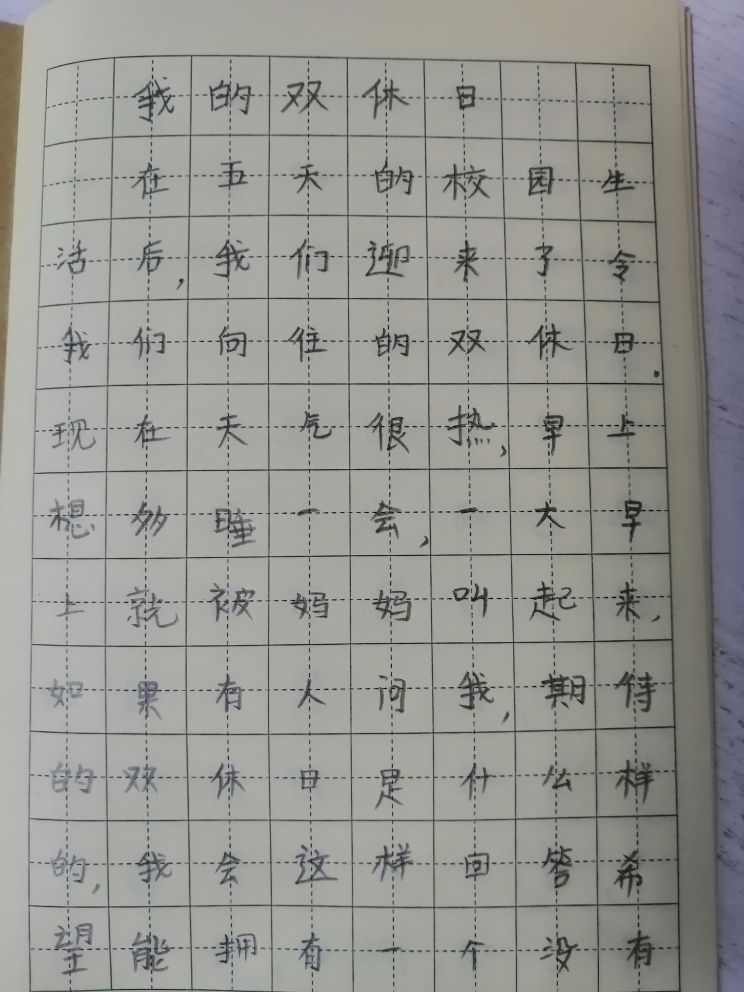 我的双休日
在五天的校园生
活后,我们迎来了令
我们向往的双休日.
现在天气很热,早上
想多睡一会,一大早
上就被妈妈叫起来,
如果有人问我,期待
的双休日是什么样
的,我会这样回答希
望能拥有一个没有